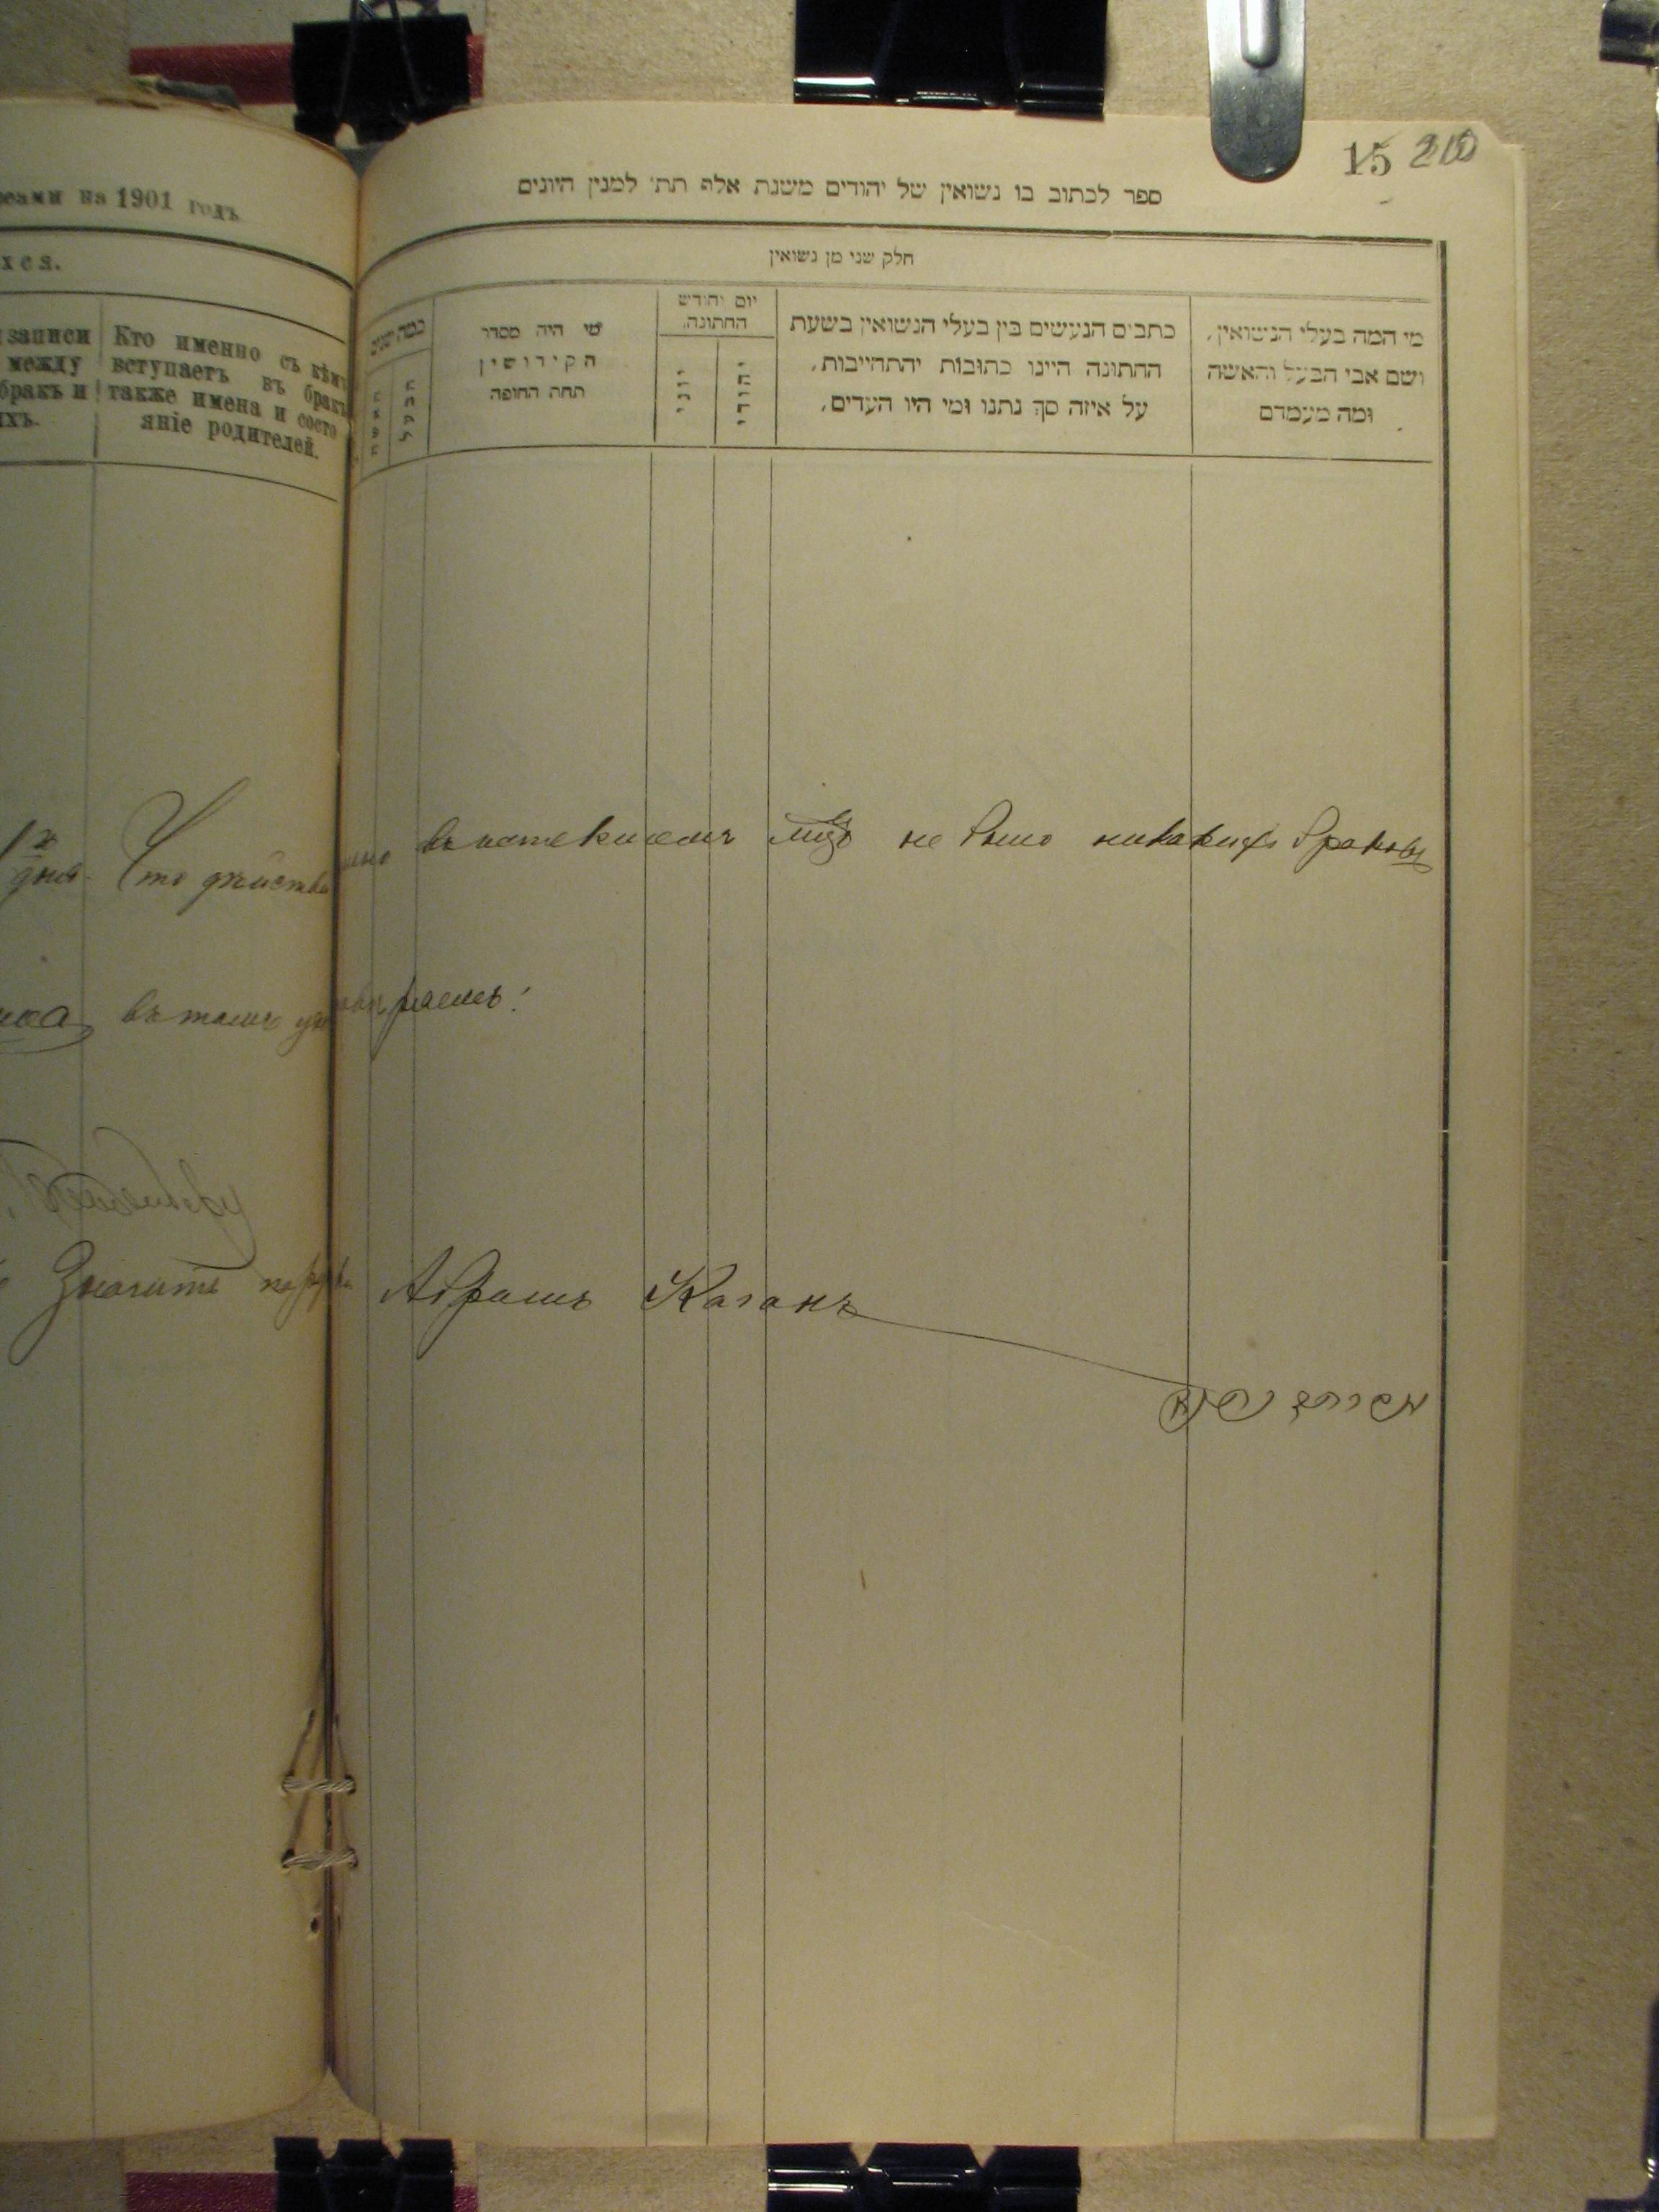 15 210
ספר לכתוב בו נשואין של יהודים משנת אלף תת׳ למנין היונים
חלק שני מן נשואין
מי המה בעלי הנשואין,
ושם אבי הבעל והאשה
ומה מעמדם
כתבים הנעשים בין בעלי הנשואין בשעת
החתונה היינו כתובות יהתחייבות,
על איזה סך נתנו ומי היו העדים,
יום וחודש
החתונה,
יהודי
יוני
מי היה מסדר
הקידושין
תחת החופה
כמה שנים
הבעל
האשה
реами на 1901 годъ
хся.
записи
между
бракъ и
ихъ.
Кто именно съ кѣмъ
вступаетъ въ бракъ
также имена и состо
яніе родителей.
дня Что действительно въ истекшемъ не было никакихъ браковъ
въ томъ удостовѣряемъ!
Абрамъ Каганъ